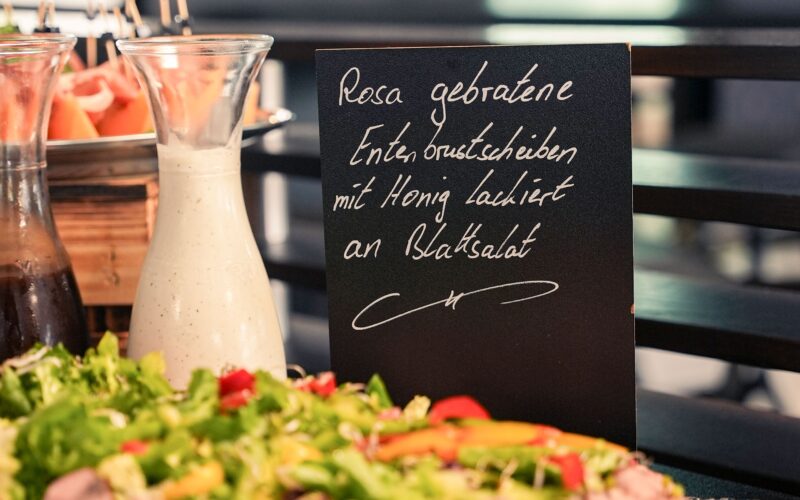 Rosa gebratene
Entenbrustscheiben
mit Honig lackiert
an Blattsalat